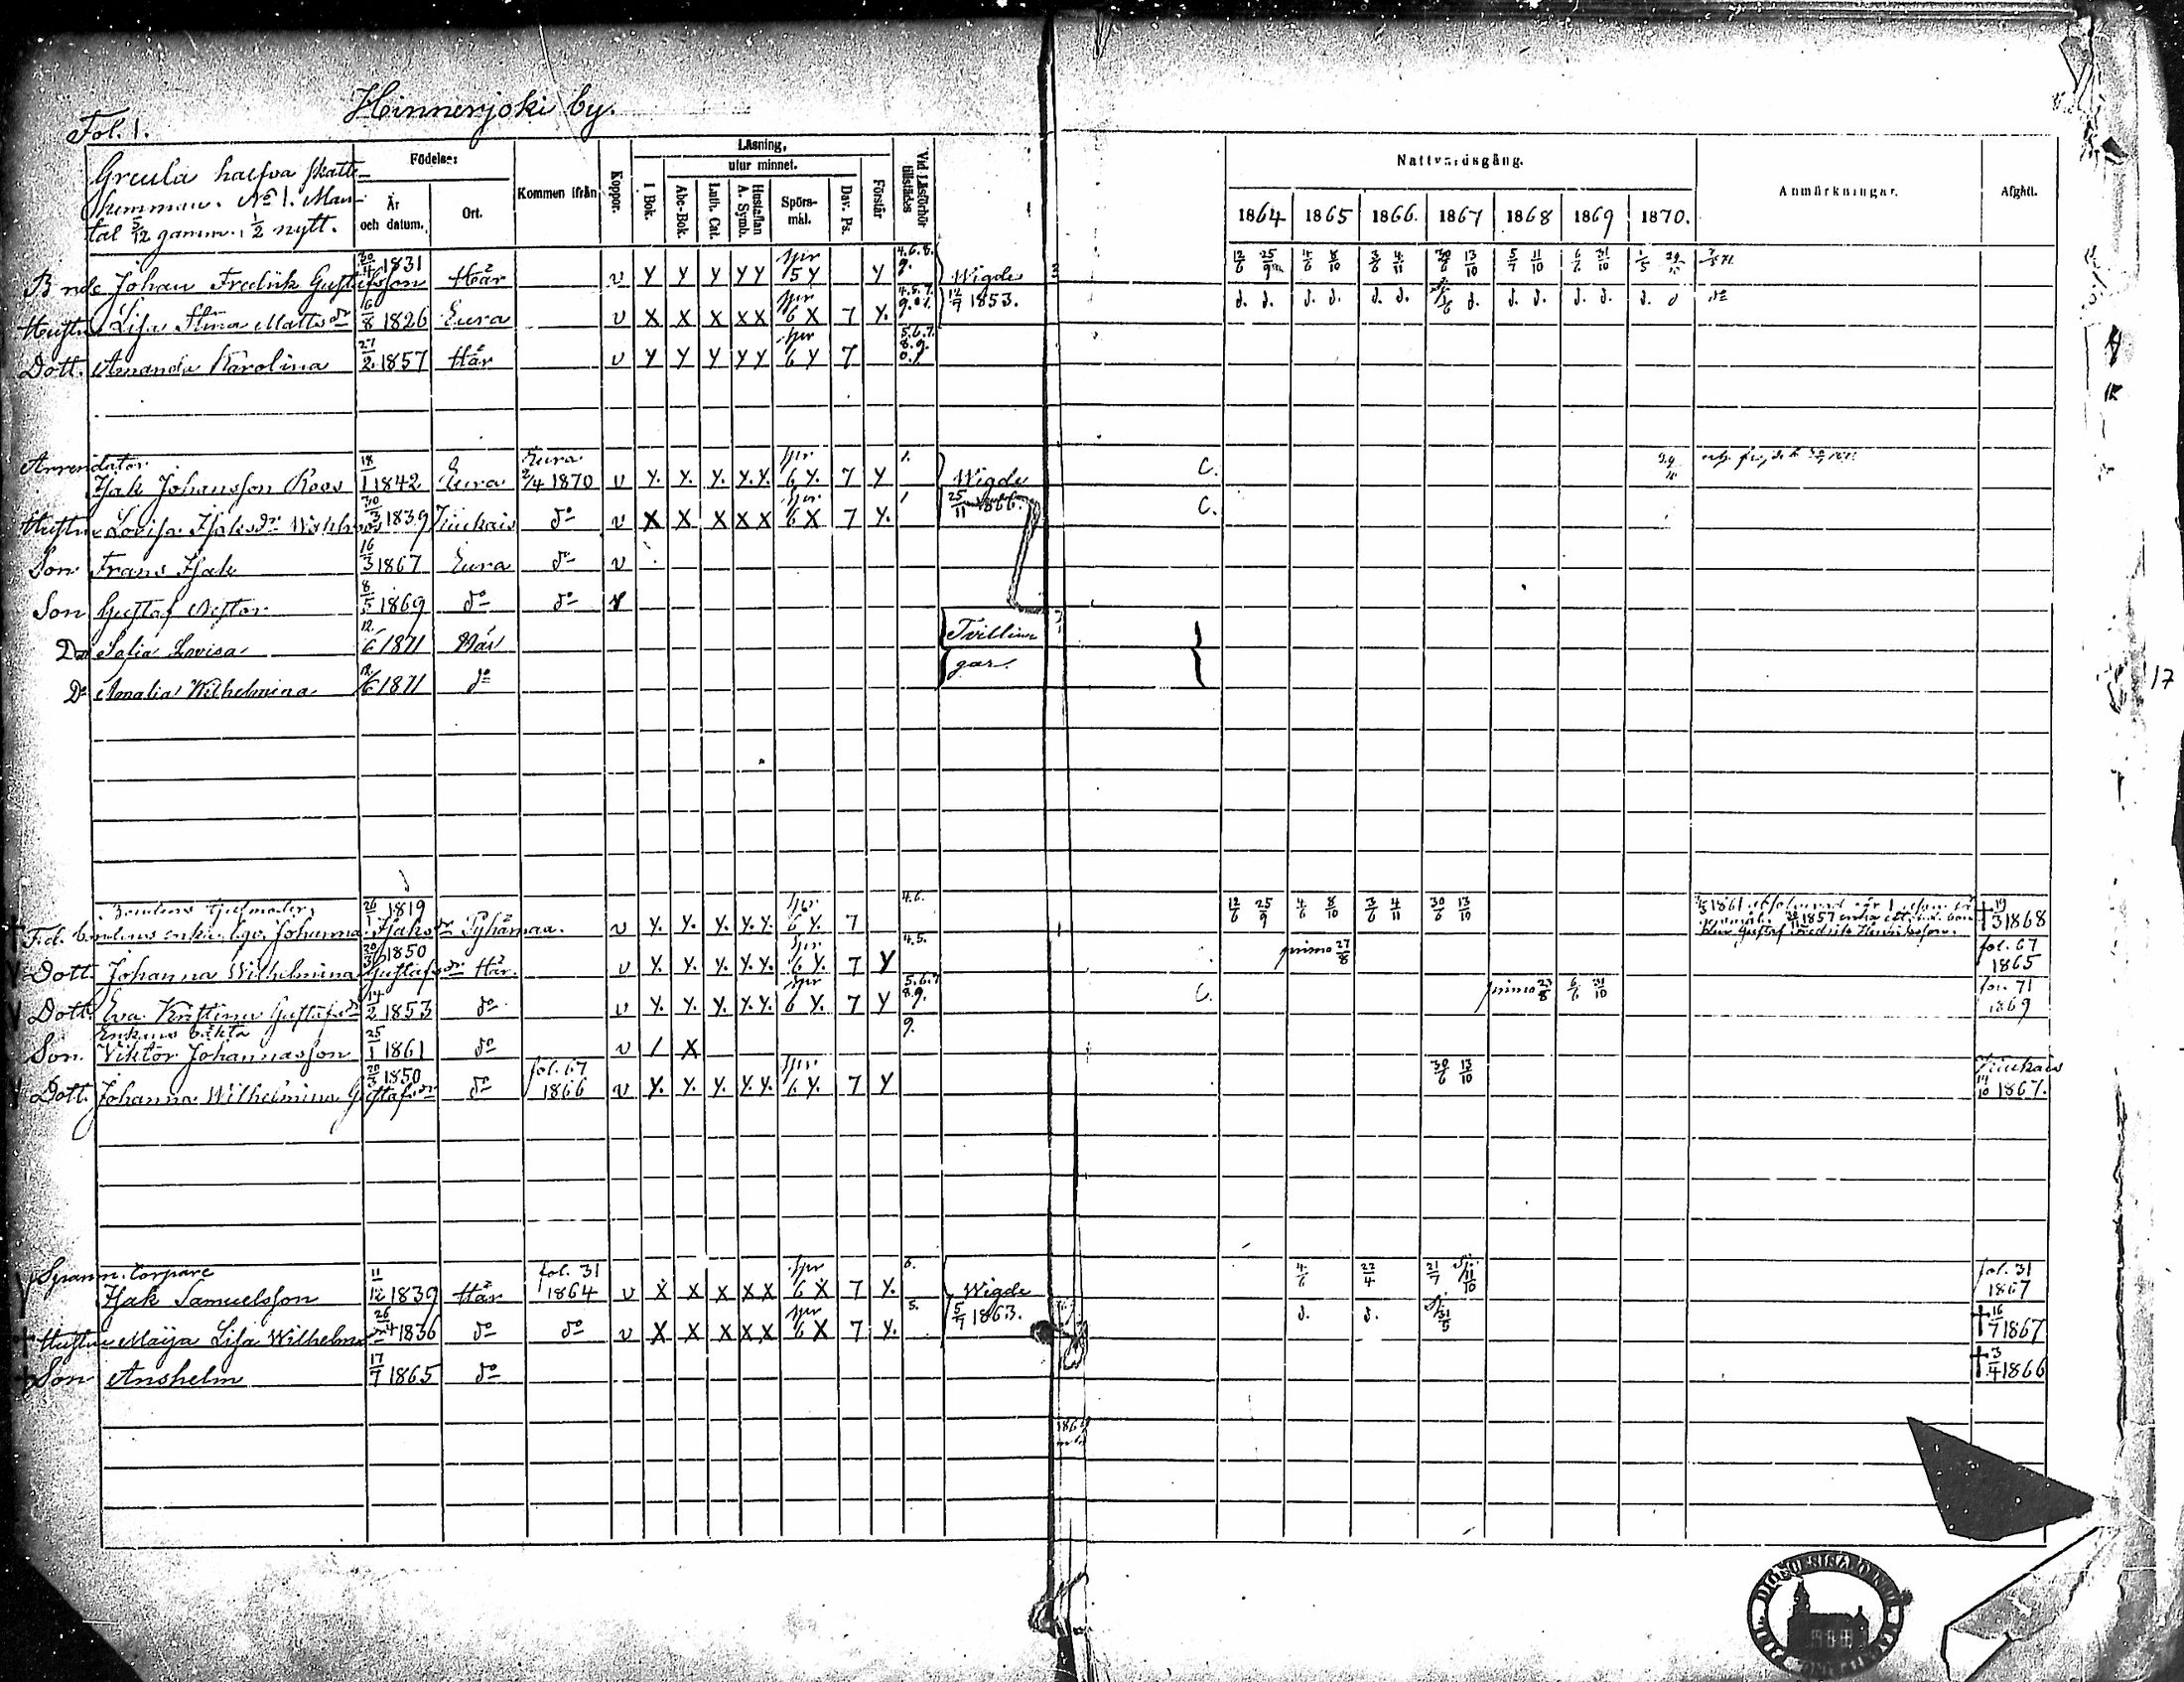 Hinnerjoki by.
Fol. 1.
Födelse: Läsning, Nattvardsgång.
utur minnet.
halfva skatte-
hemman. No 1. Man-
tal 5/12 gamm. 1/2 nytt.
År och datum. Ort. Kommen ifrån Koppor. I Bok. Abc-Bok. Luth. Cat. Hustaflan A. Symb. Spörs-mål. Dav. Ps. Förstår Vid Läsförhör tillstädes 1864 1865 1866. 1867 1868 1869 1870. Anmärkningar. Afgått.
Bonde Johan Fredrik Gustafsson 30/4 1831 Här v Y Y Y Y Y spr 5 Y Y 4.6.8. 9. Wigde 12/6 25/9 4/6 8/10 3/6 4/11 30/6 13/10 5/7 11/10 6/6 31/10
Hustru Lisa Stina Mattsdr 16/8 1826 Eura v X X X X X spr 6 X 7 Y. 4.5.7. 12/7 1853. d. d. d. d. d. d. d. d. d. d. d. d. d
Dott. Amanda Karolina 27/2 1857 Här v Y Y Y Y Y spr 6 Y 7 5.6.7. 8.9. 0.1
Arrendator
Isak Johansson Roos 18/1 1842 Eura Eura 2/4 1870 v Y. Y. Y. Y. Y. spr 6 Y. 7 Y 1. Wigde C.
Hustru Lovisa Isaksdr 30/3 1839 Kiukais do v X X X X X spr 6 X 7 Y. 1 25/11 1866. C.
Son Frans Isak 16/3 1867 Eura do v
Son Gustaf Nestor 8/5 1869 do do v
Do Sofia Lovisa 12/6 1871 Här Tvillin
Do Amalia Wilhelmina 12/6 1871 do gar.
F.d. bondens enka Johanna Isaksdr 26/1 1819 Pyhämaa. v Y. Y. Y. Y. Y. spr 6 Y. 7 4.6. 12/6 25/9 4/6 8/10 3/6 4/11 30/6 13/10 1861 1857 Gustaf Fredrik Henriksson. † 19/3 1868
Dott. Johanna Wilhelmina Gustafsdr 20/3 1850 Här. v Y. Y. Y. Y. Y. spr 6 Y. 7 Y 4.5. primo 27/8 fol. 67 1865
Dott. Eva Kristina Gustafsdr 14/2 1853 do v Y. Y. Y. Y. Y. spr 6 Y. 7 Y 5.6.7 8.9. C. primo 23/8 6/6 31/10 fol. 71 1869
Enkans oäkta
Son. Viktor Johannasson 25/1 1861 do v / X 9.
Dott. Johanna Wilhelmina Gustafsdr 20/3 1850 do fol. 67 1866 v Y. Y. Y. Y. Y. spr 6 Y. 7 Y 30/6 13/10 Kiukais 14/10 1867.
Spanm. torpare
Isak Samuelsson 11/12 1839 Här fol. 31 1864 v X X X X X spr 6 X 7 Y. 6. Wigde 4/6 22/4 21/7 11/10 fol. 31 1867
† Hustru Maija Lisa Wilhelmsdr 26/4 1836 do do v X X X X X spr 6 X 7 Y. 5. 5/7 1863. d. d. 31/5 † 16/7 1867
† Son Anshelm 17/7 1865 do † 3/4 1866
17